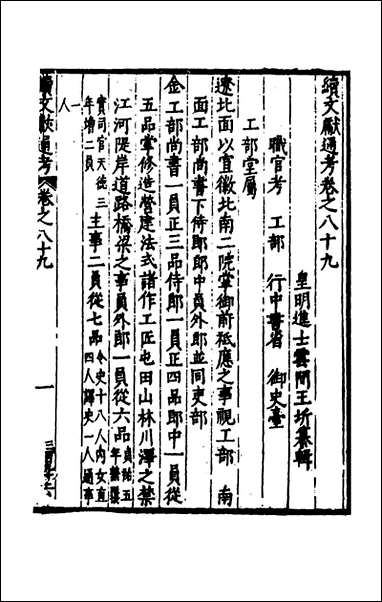 續文獻通考卷之八十九
皇明進士雲間王圻纂輯
職官考 工部 行中書省 御史臺
工部堂屬
遼北面以宣徽北南二院掌御前祗應之事視工部 南
面工部尚書下侍郎郎中員外郎並同吏部
金工部尚書一員正三品侍郎一員正四品郎中一員從
五品掌修造營建法式諸作工匠屯田山林川澤之禁
江河隄岸道路橋梁之事員外郎一員從六品
貞祐五年兼覆
實司官天德三年增二員
主事二員從七品
令史十八人內女直
四人譯史一人通事
一人
續文獻通考 卷之八十九
一